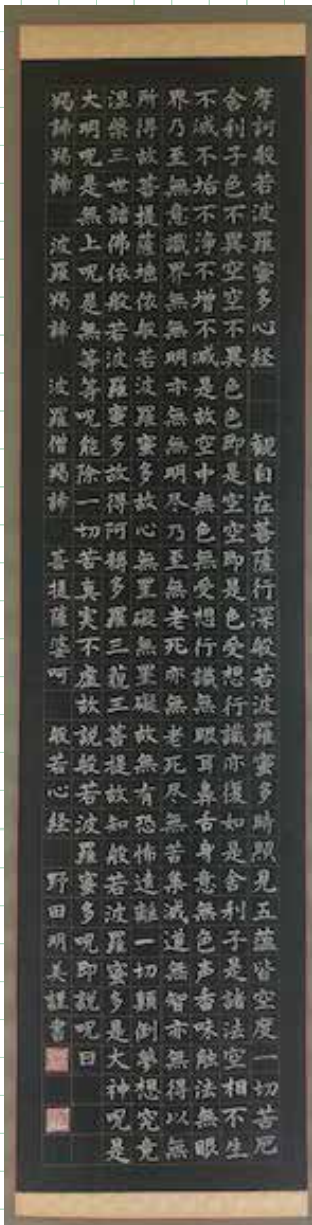 摩訶般若波羅蜜多心経　観自在菩薩行深般若波羅蜜多時照見五蘊皆空度一切苦厄
舎利子色不異空空不異色色即是空空即是色受想行識亦復如是舎利子是諸法空相不生
不滅不垢不浄不増不減是故空中無色無受想行識無眼耳鼻舌身意無色声香味触法無眼
界乃至無意識界無無明亦無無明尽乃至無老死亦無老死尽無苦集滅道無智亦無得以無
所得故菩提薩埵依般若波羅蜜多故心無罣礙無罣礙故無有恐怖遠離一切顛倒夢想究竟
涅槃三世諸佛依般若波羅蜜多故得阿耨多羅三藐三菩提故知般若波羅蜜多是大神呪是
大明呪是無上呪是無等等呪能除一切苦真実不虚故説般若波羅蜜多呪即説呪曰
羯諦羯諦　波羅羯諦　波羅僧羯諦　菩提薩婆呵　般若心経　野田明美謹書